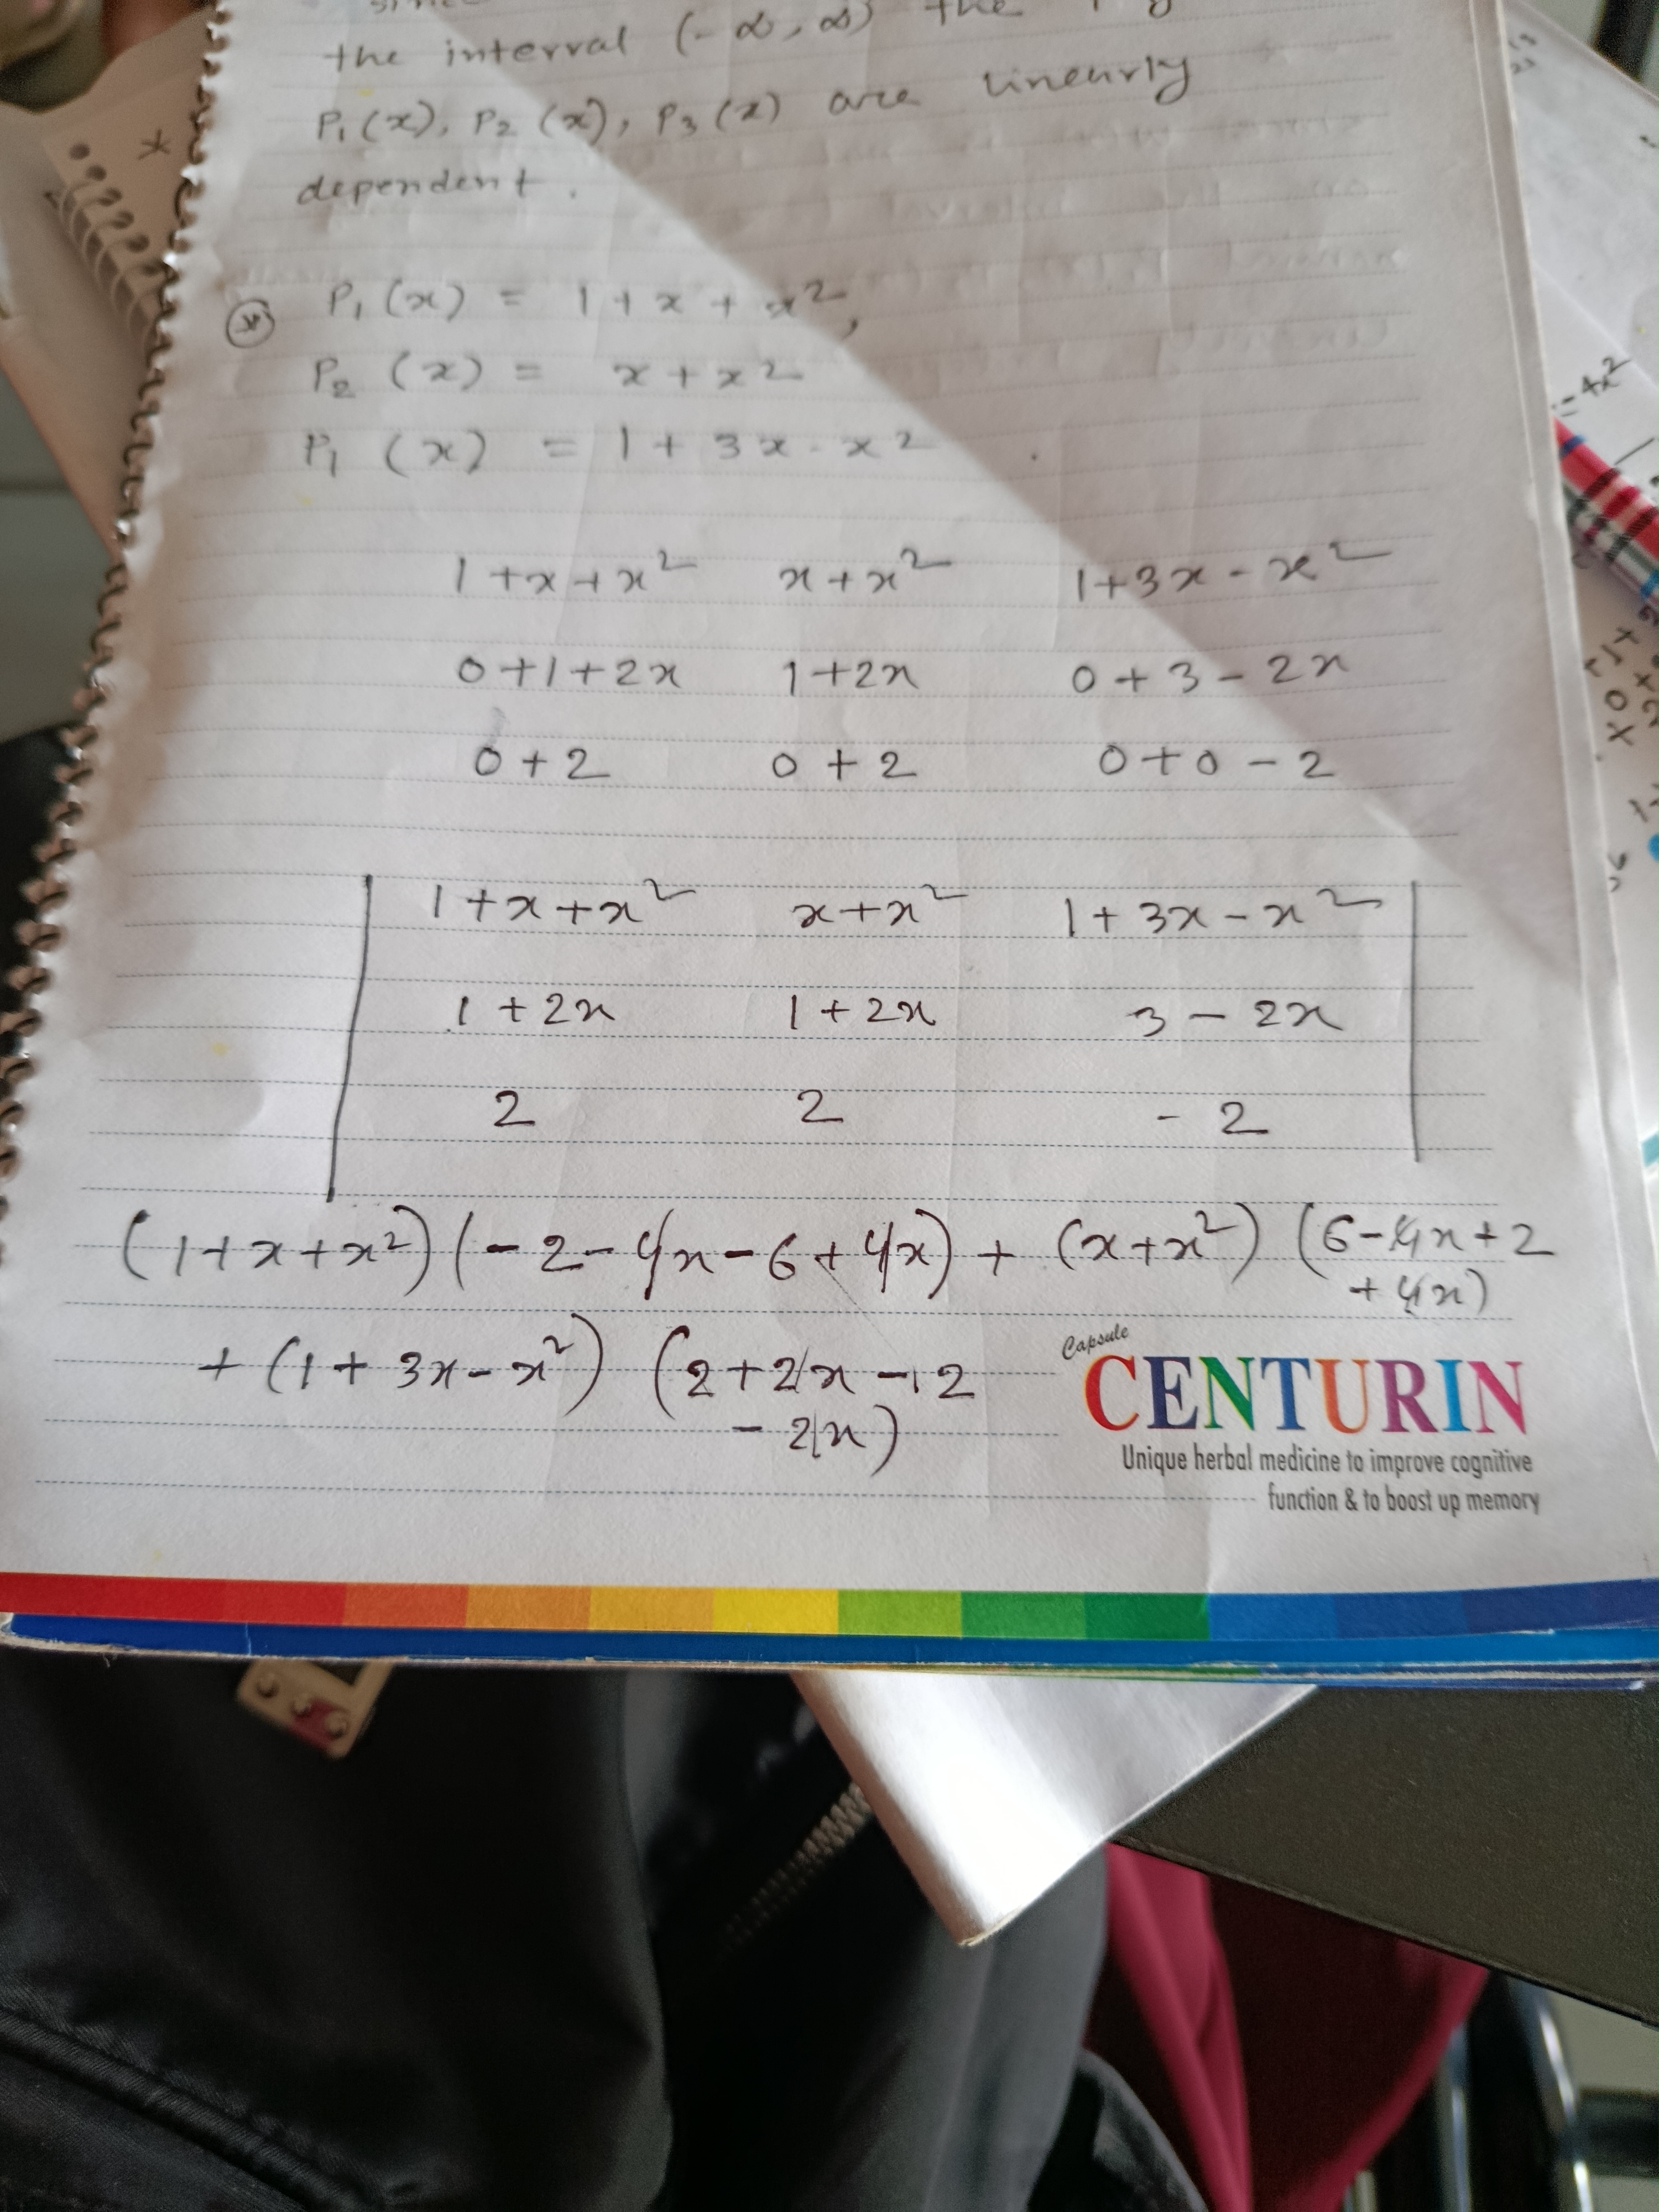 the interval (-∞, ∞) the
P₁(x), P₂(x), P₃(x) are linearly
dependent.
P₁(x) = 1 + x + x²,
P₂(x) = x + x²
P₁(x) = 1 + 3x - x²
1+x+x² x+x² 1+3x-x²
0+1+2x 1+2x 0+3-2x
0+2 0+2 0+0-2
1+x+x² x+x² 1+3x-x²
1+2x 1+2x 3-2x
2 2 -2
(1+x+x²)(-2-4x-6+4x) + (x+x²)(6-4x+2
+4x)
+ (1+3x-x²) (2+2x-2
-2x)
Capsule
CENTURIN
Unique herbal medicine to improve cognitive
function & to boost up memory
-4x²